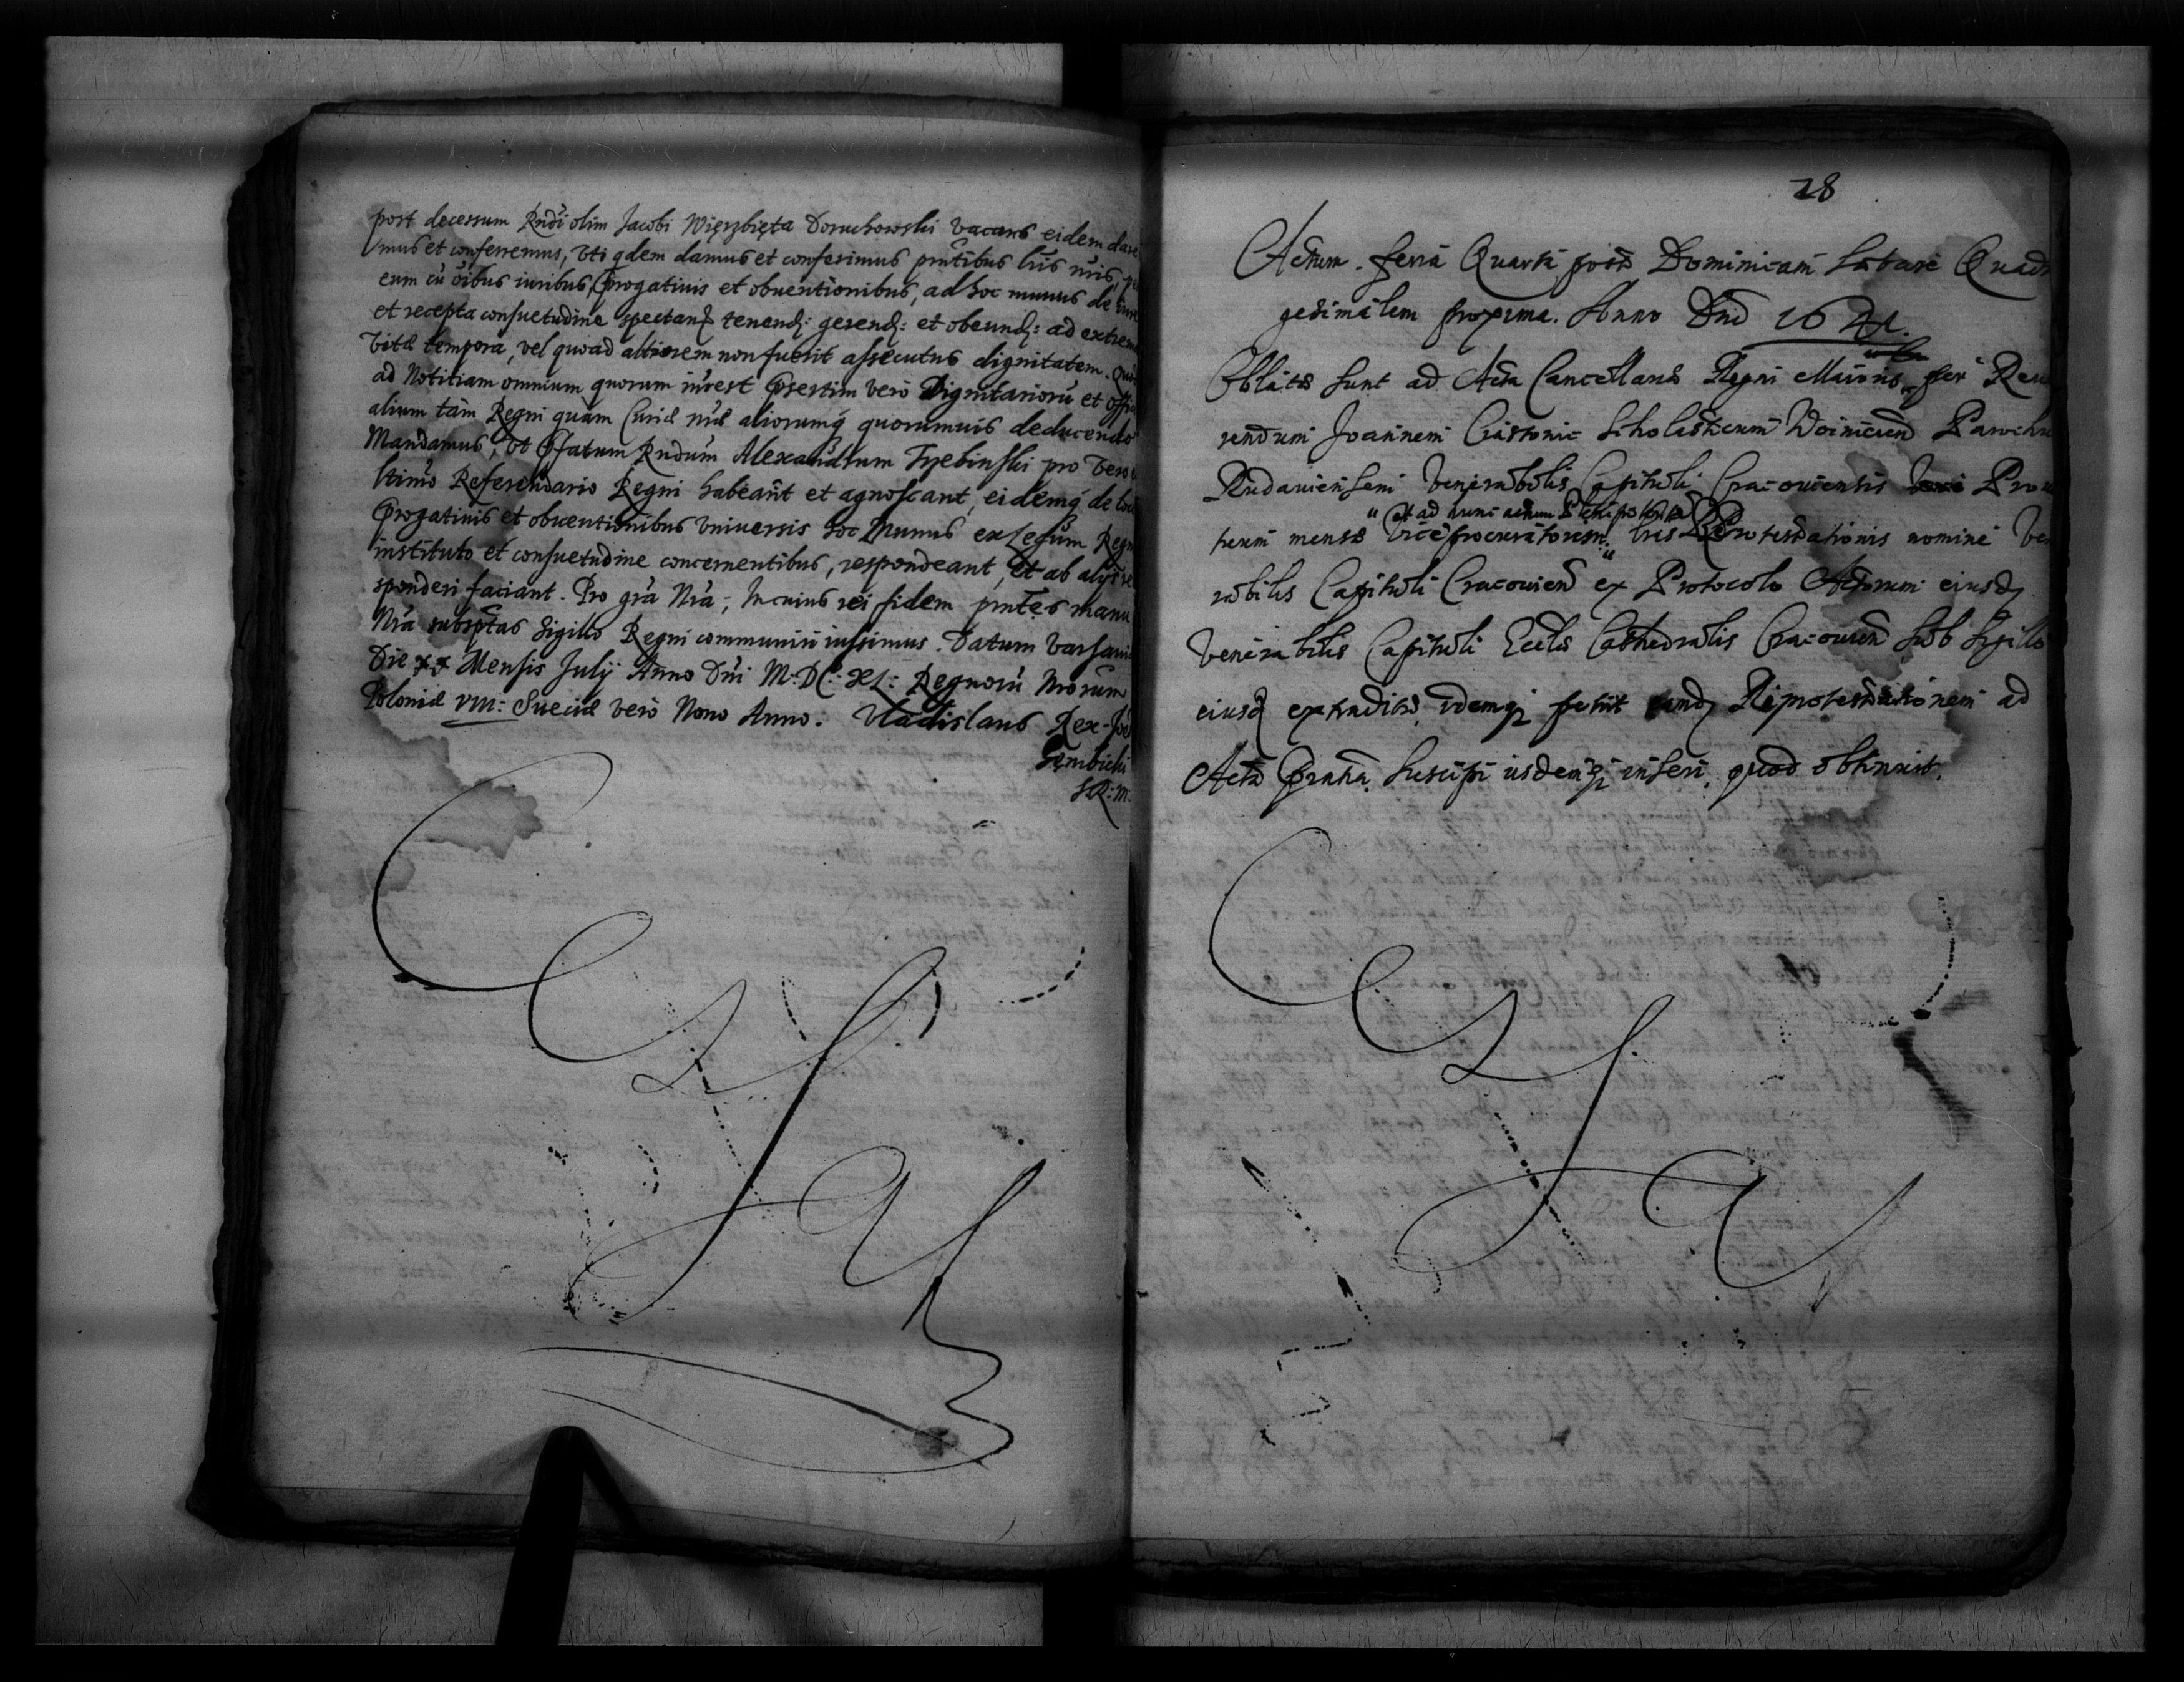 post decessum Rndi olim Jacobi Więrzbięta Doruchowski vacans eidem dare
mus et conferremus, Uti qdem damus et conferimus pntibus lris nris,
eum cū oibus iuribus, Progatiuis et obuentionibus, ad hoc munus de iure
et recepta consuetudine spectand tenend: gerend: et obeund: ad extrema
Vitæ tempora, vel quoad altiorem non fuerit assecutus dignitatem. Quod
ad Notitiam omnium quorum intrest Psertim vero Dignitarioru et offici
alium tam Regni quam Curiæ nræ aliorumq quorumuis deducendo
Mandamus, Ut Pfatum Rndum Alexandrum Trzebinski pro vero
ltimo Referendario Regni habeant et agnoscant, eidemq de
Progatiuis et obuentionibus Vniuersis hoc Munus ex Legum Regni
instituto et consuetudine concernentibus, respondeant, et ab alys re
sponderi faciant. Pro gra Nra, In cuius rei fidem pntes manu
Nra subsptas Sigillo Regni communiri iussimus. Datum Varsauiæ
Die xx Mensis July Anno Dni M.DC.XL: Regnoru Nrorum
Poloniæ VIII: Sueciæ vero Nono Anno. Vladislaus Rex
Gembicki
S.R.M.
28
Actum feria Quarta post Dominicam Lætare Quadra
gesimalem proxima. Anno Dni 1641.
Oblatæ sunt ad Acta Cancellariæ Regni Maioris per Reue
rendum Joannem Scholasticum Woinicien Parochum
Rudauiensem Venerabilis Capituli Cracouiensis
et ad hunc actum Plenipotentem
mensæ Viceprocuratorem, Lræ Reprotestationis nomine Vene
rabilis Capituli Cracouien ex Protocolo Actorum eiusd
Venerabilis Capituli Eccliæ Cathedralis Cracouien sub Sigillo
eiusd extraditæ, idemq petiit eand Reprotestationem ad
Acta Prntia suscipi iisdemq inseri, quod obtinuit.